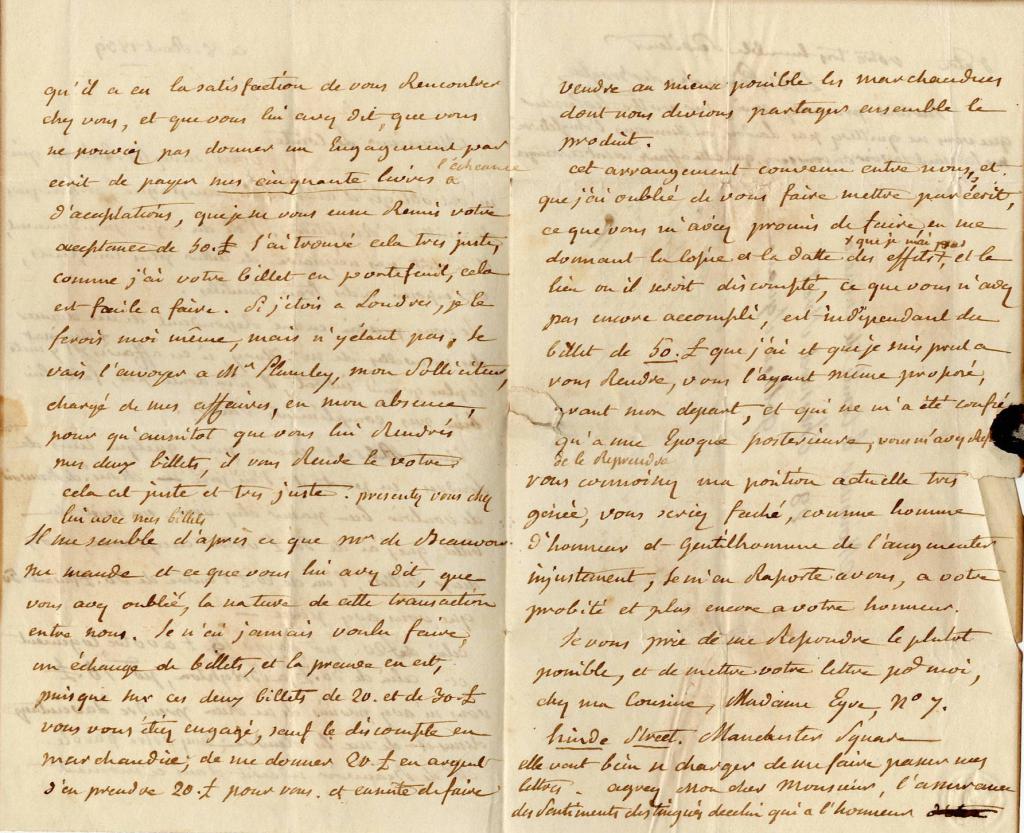 qu'il a eu la satisfaction de vous Rencontrer
chez vous, et que vous lui avez dit, que vous
ne pouviez pas donner un Engagement par
l'échéance
ecrit de payer mes cinquante livres a
d'acceptations, que je ne vous eusse Remis votre
acceptance de 50.£ J'ai trouvé cela tres juste,
comme j'ai votre billet en portefeuil, cela
est facile a faire. Si j'etois a Londres, je le
ferois moi même, mais n'y étant pas, Je
vais l'envoyer a Mr Plumley, mon Solliciteur,
chargé de mes affaires, en mon absence,
pour qu'aussitot que vous lui Rendrés
mes deux billets, il vous Rende le votre,
cela est juste et tres juste. presentez vous chez
lui avec mes billets
Il me semble d'après ce que Mr de Beauvoir
me mande et ce que vous lui avez dit, que
vous avez oublié, la nature de cette transaction
entre nous. Je n'ai jamais voulu faire,
un échange de billets, et la preuve en est,
puisque sur ces deux billets de 20. et de 30.£
vous vous étiez engagé, sauf le discompte en
marchandise, de me donner 20.£ en argent
d'en prendre 20.£ pour vous. et ensuite de faire
vendre au mieux possible les marchandises
dont nous devions partager ensemble le
produit.
cet arrangement convenu entre nous, et
que j'ai oublié de vous faire mettre par écrit,
ce que vous m'aviez promis de faire, en me
x que je
donnant la copie et la datte des effets x, et le
lieu ou il seroit discompté, ce que vous n'avez
pas encore accompli, est indépendant du
billet de 50.£ que j'ai et que je suis pret a
vous Rendre, vous l'ayant même proposé,
avant mon depart, et qui ne m'a été confié
qu'a une Epoque posterieure, vous m'avez
de le Reprendre
vous connoissez ma position actuelle tres
génée, vous seriez faché, comme homme
d'honneur et Gentilhomme de l'augmenter
injustement, Je m'en Raporte a vous, a votre
probité et plus encore a votre honneur.
Je vous prie de me Repondre le plutot
possible, et de mettre votre lettre pour moi,
chez ma Cousine, Madame Eyre, No 7.
hinde Street. Manchester Square
elle veut bien se charger de me faire passer mes
lettres. agréez Mon cher Monsieur, l'assurance
des Sentiments distingués de celui qui a l'honneur